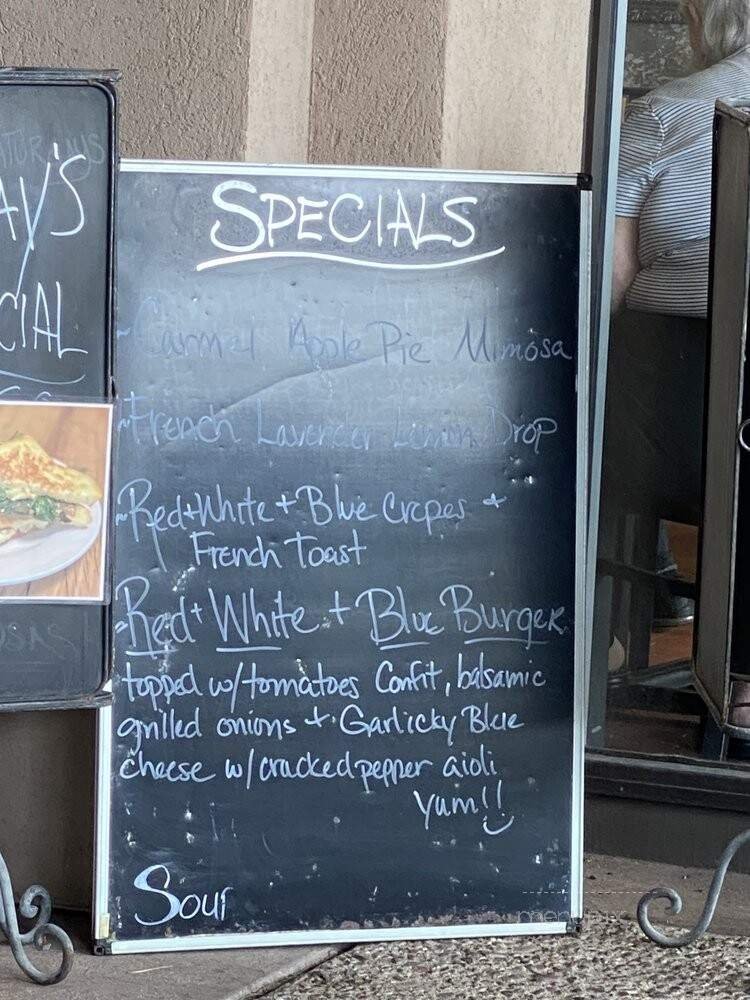 SPECIALS
~Carmel Apple Pie Mimosa
~French Lavender Lemon Drop
~Red+White+Blue Crepes +
French Toast
~Red+White+Blue Burger
topped w/tomatoes Confit, balsamic
grilled onions + Garlicky Blue
cheese w/cracked pepper aioli
yum!!
Sour
AY'S
CIAL